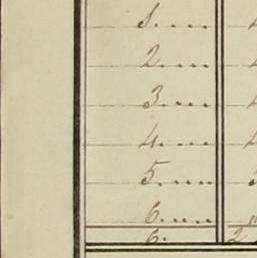 1.....
2.....
3.....
4.....
5.....
6.....
6. 2